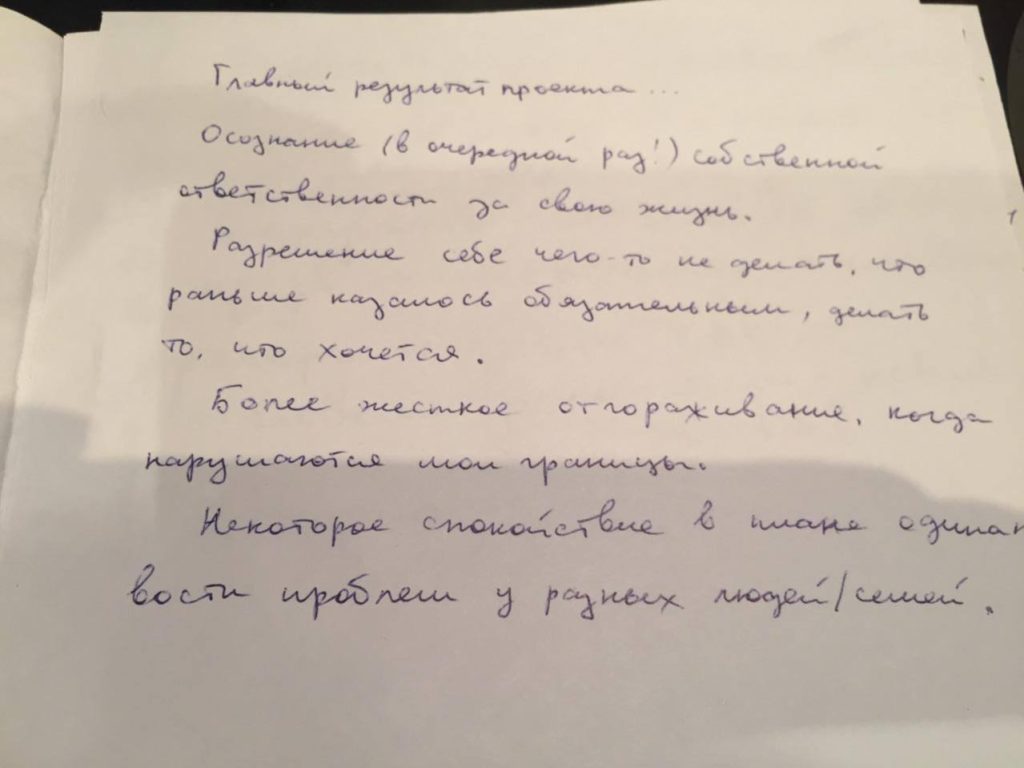 Главный результат проекта...
Осознание (в очередной раз!) собственной
ответственности за свою жизнь.
Разрешение себе чего-то не делать, что
раньше казалось обязательным, делать
то, что хочется.
Более жесткое отгораживание, когда
нарушаются мои границы.
Некоторое спокойствие в плане одинак
вости проблем у разных людей/семей.